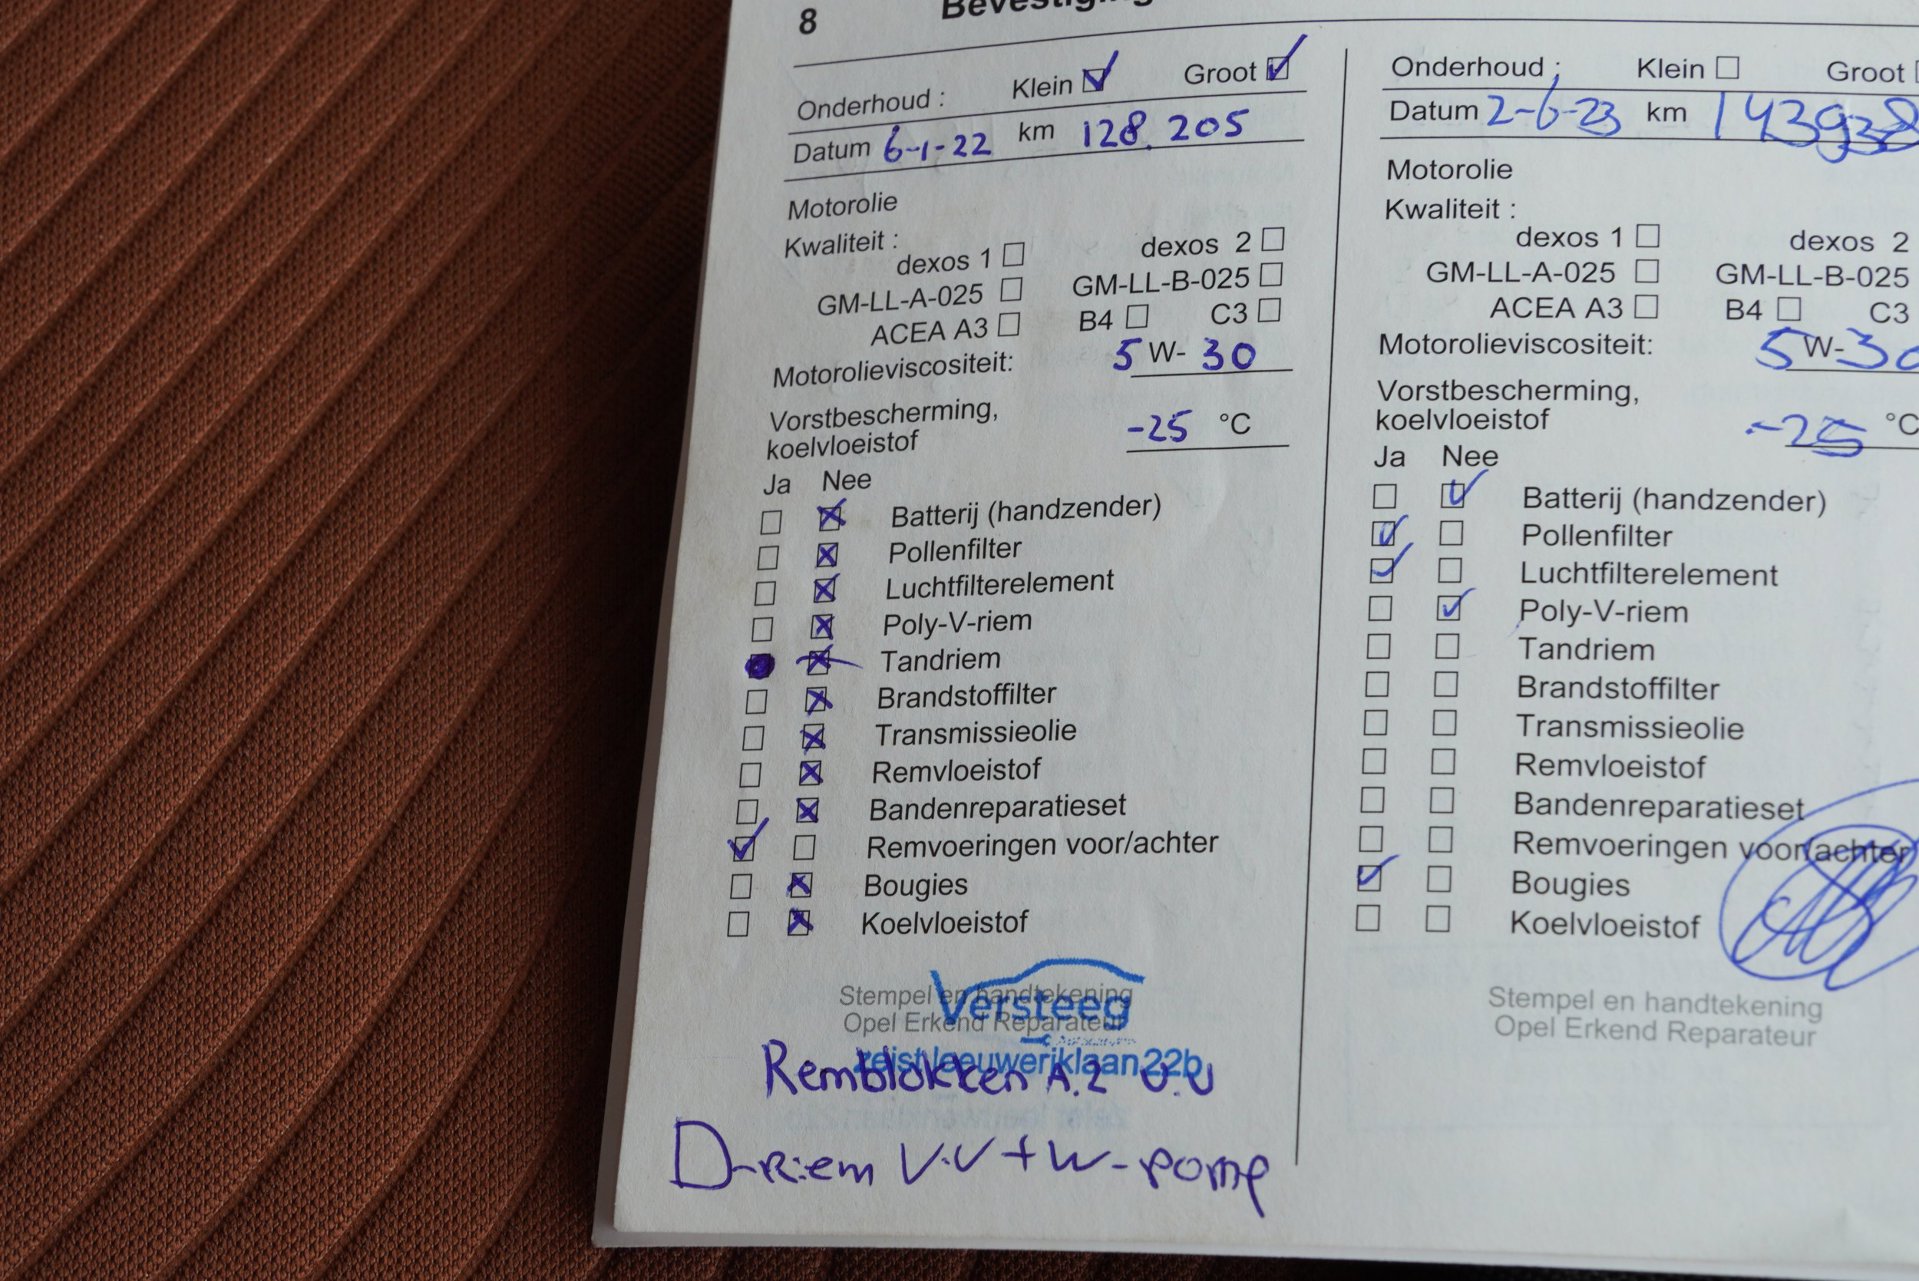 8
Onderhoud : Klein Groot
Datum 6-1-22 km 128.205
Motorolie
Kwaliteit :
dexos 1 dexos 2
GM-LL-A-025 GM-LL-B-025
ACEA A3 B4 C3
Motorolieviscositeit: 5 W- 30
Vorstbescherming,
koelvloeistof -25 °C
Ja Nee
Batterij (handzender)
Pollenfilter
Luchtfilterelement
Poly-V-riem
Tandriem
Brandstoffilter
Transmissieolie
Remvloeistof
Bandenreparatieset
Remvoeringen voor/achter
Bougies
Koelvloeistof
Stempel en handtekening
Opel Erkend Reparateur
Versteeg
zeist leeuweriklaan 22b
Remblokken A.Z V.V
D-Riem V.V + W-pomp
Onderhoud : Klein Groot
Datum 2-6-23 km 143938
Motorolie
Kwaliteit :
dexos 1 dexos 2
GM-LL-A-025 GM-LL-B-025
ACEA A3 B4 C3
Motorolieviscositeit: 5 W- 30
Vorstbescherming,
koelvloeistof -25 °C
Ja Nee
Batterij (handzender)
Pollenfilter
Luchtfilterelement
Poly-V-riem
Tandriem
Brandstoffilter
Transmissieolie
Remvloeistof
Bandenreparatieset
Remvoeringen voor/achter
Bougies
Koelvloeistof
Stempel en handtekening
Opel Erkend Reparateur